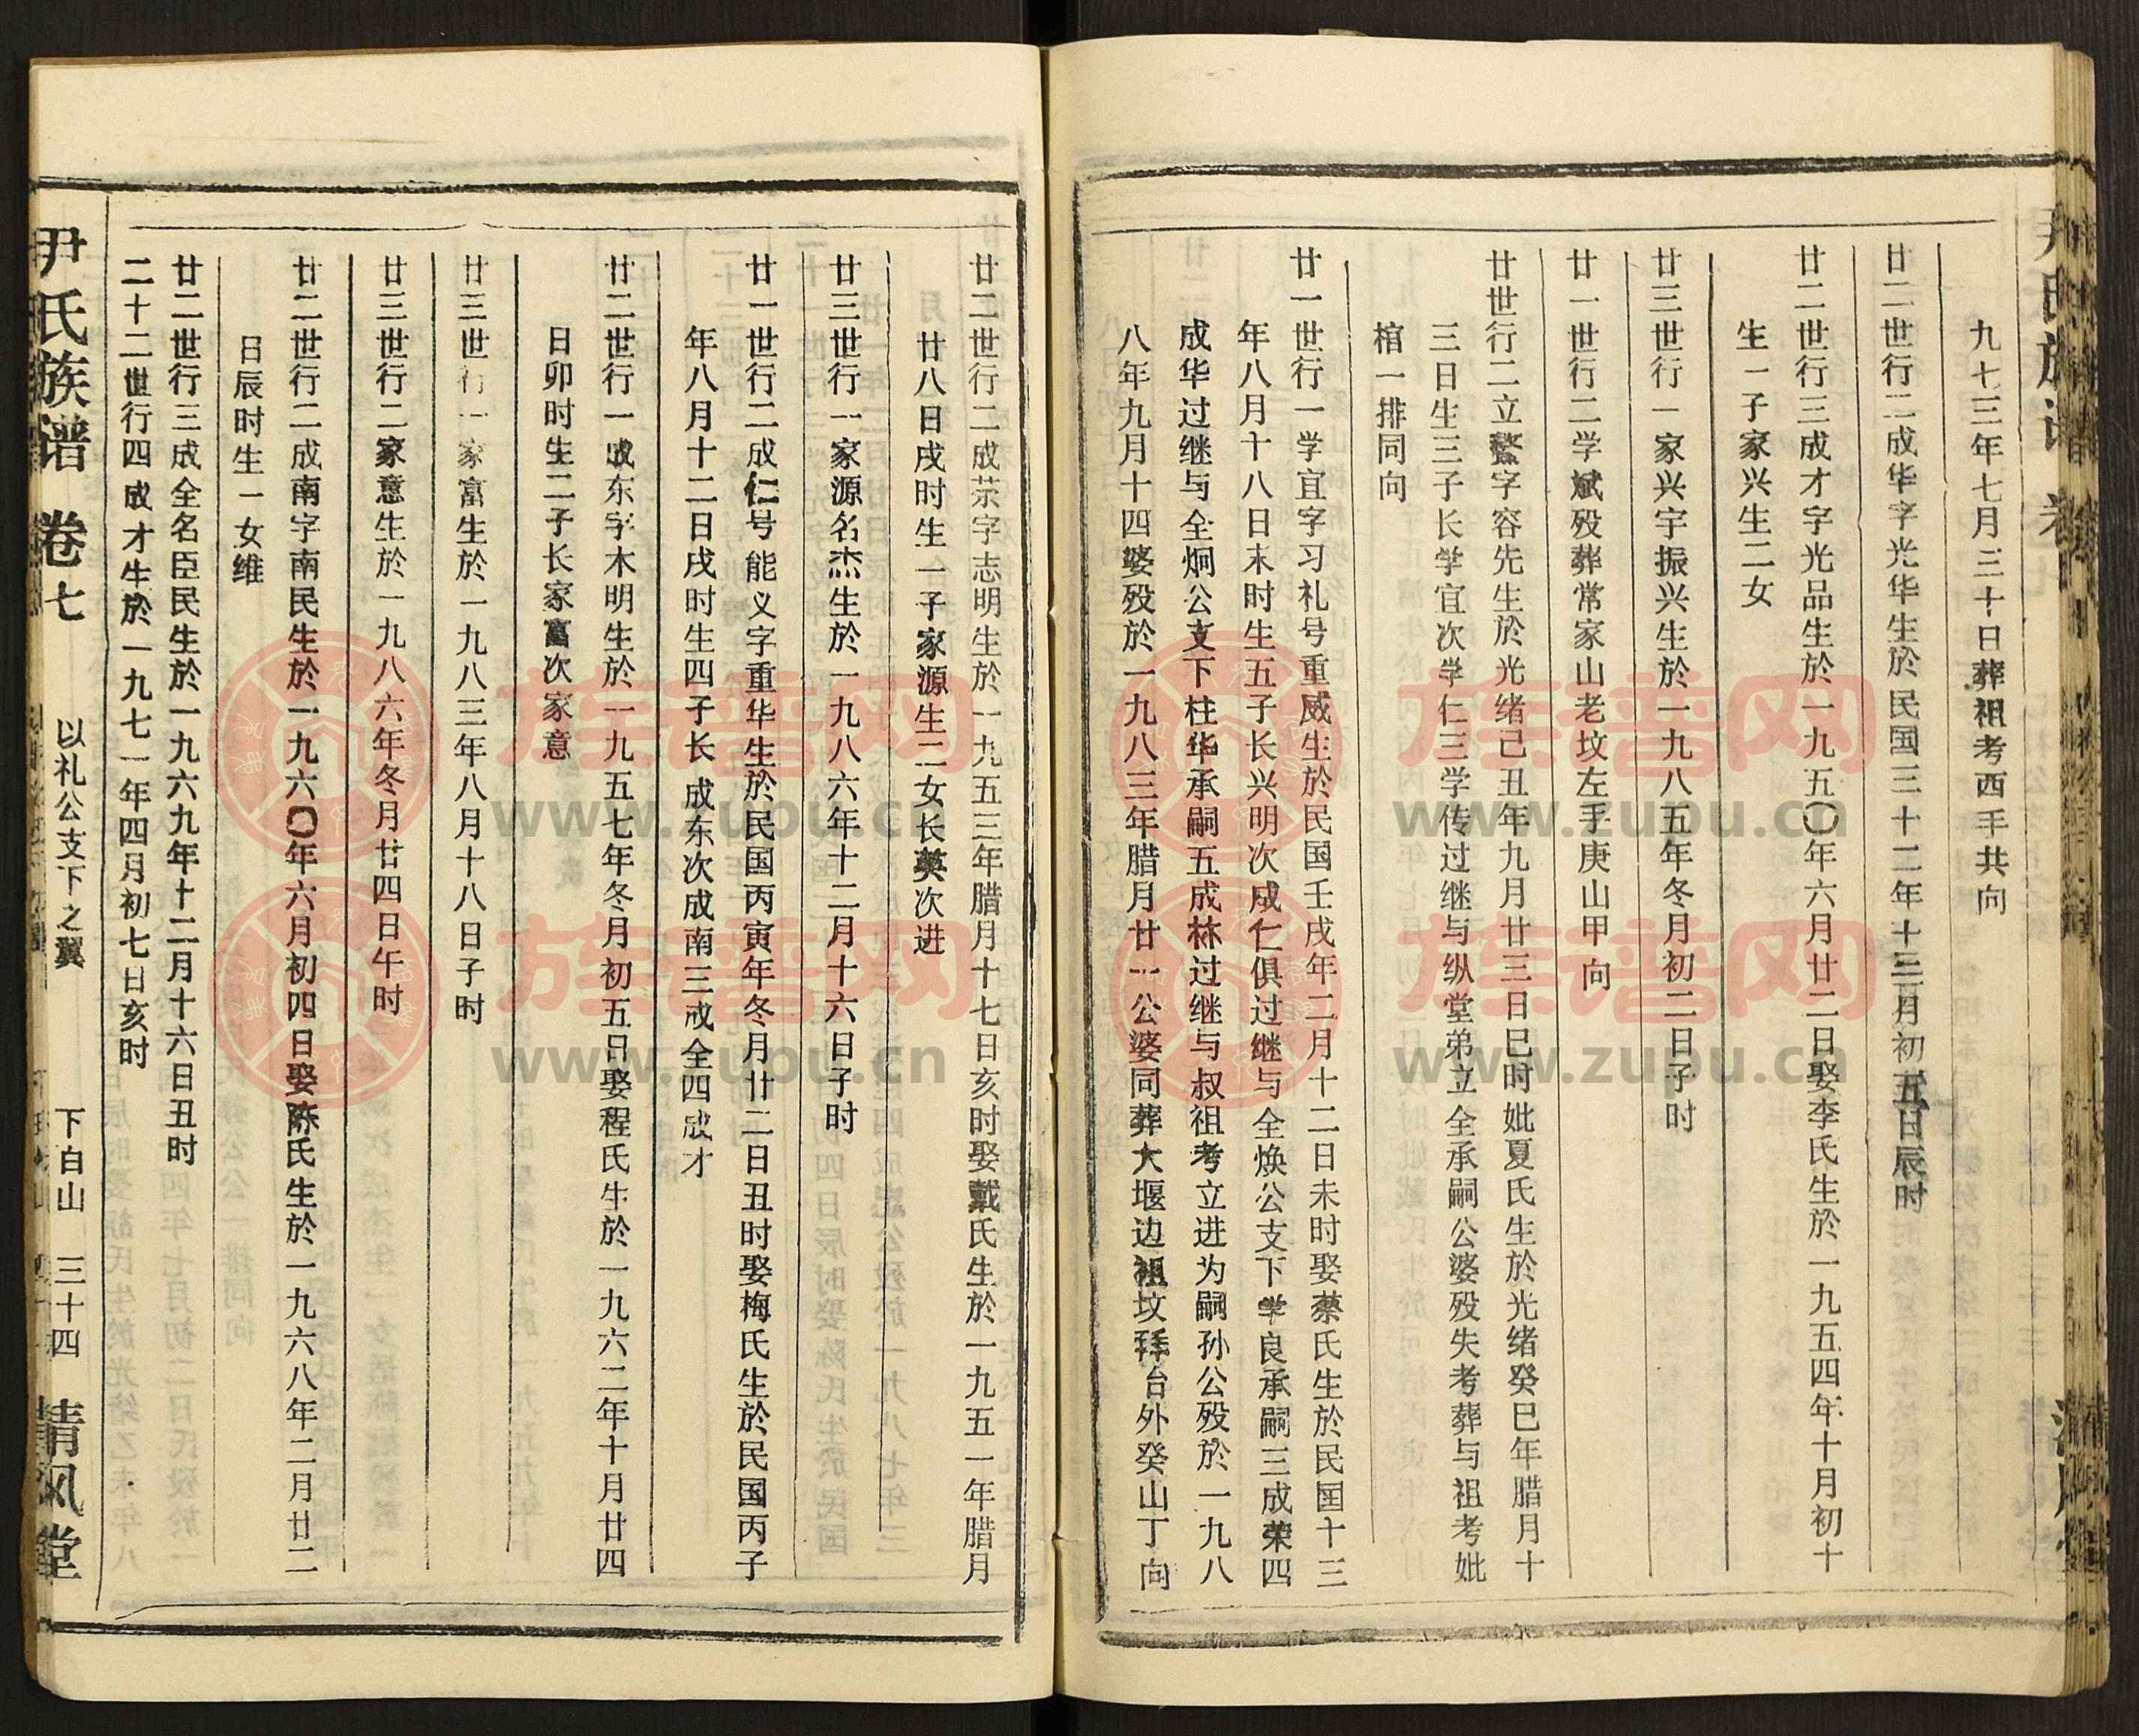 九七三年七月三十日葬祖考西手共向
廿二世行二成华字光华生於民国三十二年十三月初五日辰时
廿二世行三成才字光品生於一九五〇年六月廿二日娶李氏生於一九五四年十月初十
生一子家兴生二女
廿三世行一家兴字振兴生於一九八五年冬月初二日子时
廿一世行二学斌殁葬常家山老坟左手庚山甲向
廿世行二立鳌字容先生於光绪己丑年九月廿三日巳时妣夏氏生於光绪癸巳年腊月十
三日生三子长学宜次学仁三学传过继与纵堂弟立全承嗣公婆殁失考葬与祖考妣
棺一排同向
廿一世行一学宜字习礼号重威生於民国壬戌年二月十二日未时娶蔡氏生於民国十三
年八月十八日未时生五子长兴明次成仁俱过继与全焕公支下学良承嗣三成荣四
成华过继与全炯公支下柱华承嗣五成林过继与叔祖考立进为嗣孙公殁於一九八
八年九月十四婆殁於一九八三年腊月廿一公婆同葬大堰边祖坟拜台外癸山丁向
廿二世行二成荣字志明生於一九五三年腊月十七日亥时娶戴氏生於一九五一年腊月
廿八日戌时生一子家源生二女长英次进
廿三世行一家源名杰生於一九八六年十二月十六日子时
廿一世行二成仁号能义字重华生於民国丙寅年冬月廿二日丑时娶梅氏生於民国丙子
年八月十二日戌时生四子长成东次成南三成全四成才
廿二世行一成东字木明生於一九五七年冬月初五日娶程氏生於一九六二年十月廿四
日卯时生二子长家富次家意
廿三世行一家富生於一九八三年八月十八日子时
廿三世行二家意生於一九八六年冬月廿四日午时
廿二世行二成南字南民生於一九六〇年六月初四日娶陈氏生於一九六八年二月廿二
日辰时生一女维
廿二世行三成全名臣民生於一九六九年十二月十六日丑时
二十二世行四成才生於一九七一年四月初七日亥时
尹氏族谱 卷七 以礼公支下之翼 下白山 三十四 清风堂
族谱网
www.zupu.cn
族谱网
www.zupu.cn
族谱网
www.zupu.cn
族谱网
www.zupu.cn